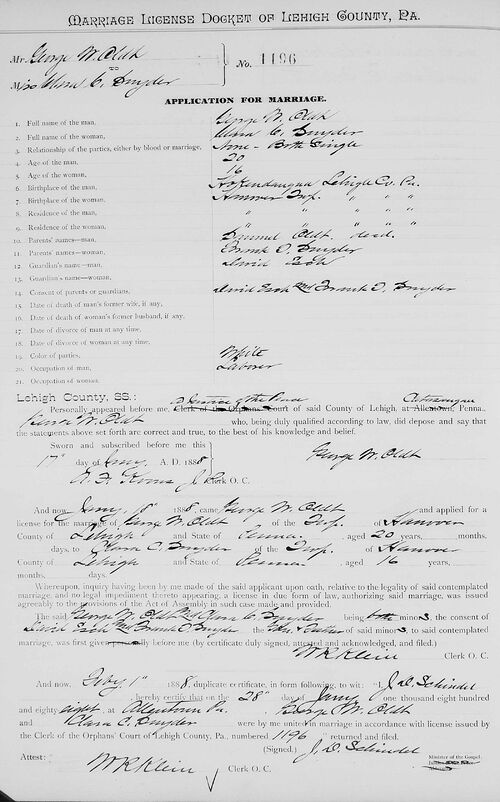 MARRIAGE LICENSE DOCKET OF LEHIGH COUNTY, PA.
Mr. George W. Oldt
Miss Clara C. Snyder
No. 1196
APPLICATION FOR MARRIAGE.
1. Full name of the man, George W. Oldt
2. Full name of the woman, Clara C. Snyder
3. Relationship of the parties, either by blood or marriage, None - Both Single
4. Age of the man, 20
5. Age of the woman, 16
6. Birthplace of the man, Hokendauqua Lehigh Co. Pa.
7. Birthplace of the woman, Hanover Twp. " " "
8. Residence of the man, " " " " "
9. Residence of the woman, " " " " "
10. Parents' names—man, Oldt dead.
11. Parents' names—woman, Frank O. Snyder
12. Guardian's name—man, David
13. Guardian's name—woman,
14. Consent of parents or guardians, David and Frank O. Snyder
15. Date of death of man's former wife, if any,
16. Date of death of woman's former husband, if any,
17. Date of divorce of man at any time,
18. Date of divorce of woman at any time,
19. Color of parties, White
20. Occupation of man, Laborer
21. Occupation of woman,
Lehigh County, SS.: a Justice of the Peace Catasauqua
Personally appeared before me, Clerk of the Orphans' Court of said County of Lehigh, at Allentown, Penna.,
George W. Oldt who, being duly qualified according to law, did depose and say that
the statements above set forth are correct and true, to the best of his knowledge and belief.
Sworn and subscribed before me this
17" day of Jany. A. D. 1888
George W. Oldt
Clerk O. C.
And now, Jany. 18" 1888, came George W. Oldt and applied for a
license for the marriage of George W. Oldt of the Twp. of Hanover
County of Lehigh and State of Penna., aged 20 years, months,
days, to Clara C. Snyder of the Twp. of Hanover
County of Lehigh and State of Penna, aged 16 years,
months, days.
Whereupon, inquiry having been by me made of the said applicant upon oath, relative to the legality of said contemplated
marriage, and no legal impediment thereto appearing, a license in due form of law, authorizing said marriage, was issued
agreeably to the provisions of the Act of Assembly in such case made and provided.
The said George W. Oldt and Clara C. Snyder being both minors, the consent of
David and Frank O. Snyder the Gdn. & Father of said minors, to said contemplated
marriage, was first given personally before me (by certificate duly signed, attested and acknowledged, and filed.)
W R Klein Clerk O. C.
And now, Feby 1" 1888, duplicate certificate, in form following, to wit: "I, J. D. Schindel
, hereby certify that on the 28" day of Jany. one thousand eight hundred
and eighty eight, at Allentown Pa. George W. Oldt
and Clara C. Snyder were by me united in marriage in accordance with license issued
by the Clerk of the Orphans' Court of Lehigh County, Pa., numbered 1196" returned and filed.
(Signed.) J. D. Schindel
Minister of the Gospel.
Attest: W R Klein Clerk O. C.